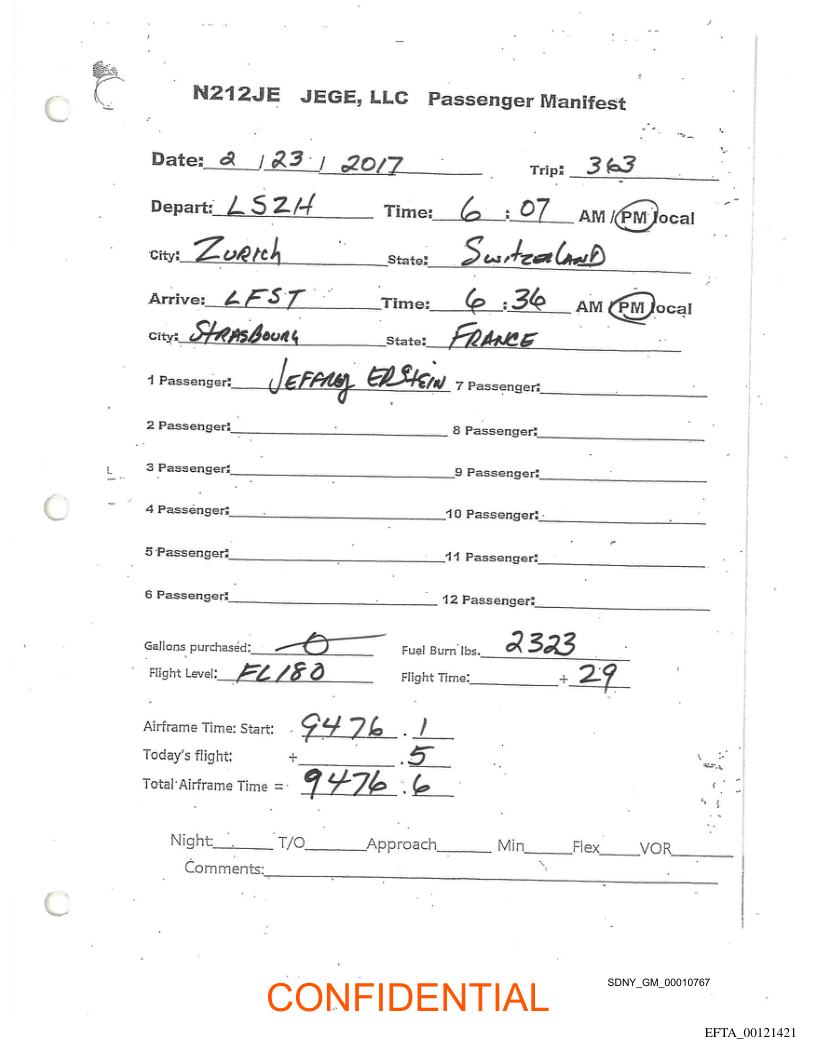 N212JE JEGE, LLC Passenger Manifest
Date: 2 / 23 / 2017 Trip: 363
Depart: LSZH Time: 6 : 07 AM / PM local
City: ZURICH State: SWITZERLAND
Arrive: LFST Time: 6 : 36 AM / PM local
City: STRASBOURG State: FRANCE
1 Passenger: JEFFREY EPSTEIN 7 Passenger:
2 Passenger: 8 Passenger:
3 Passenger: 9 Passenger:
4 Passenger: 10 Passenger:
5 Passenger: 11 Passenger:
6 Passenger: 12 Passenger:
Gallons purchased: 0 Fuel Burn lbs. 2323
Flight Level: FL180 Flight Time: + 29
Airframe Time: Start: 9476 . 1
Today's flight: + . 5
Total Airframe Time = 9476 . 6
Night: T/O Approach Min Flex VOR
Comments:
SDNY_GM_00010767
CONFIDENTIAL
EFTA_00121421